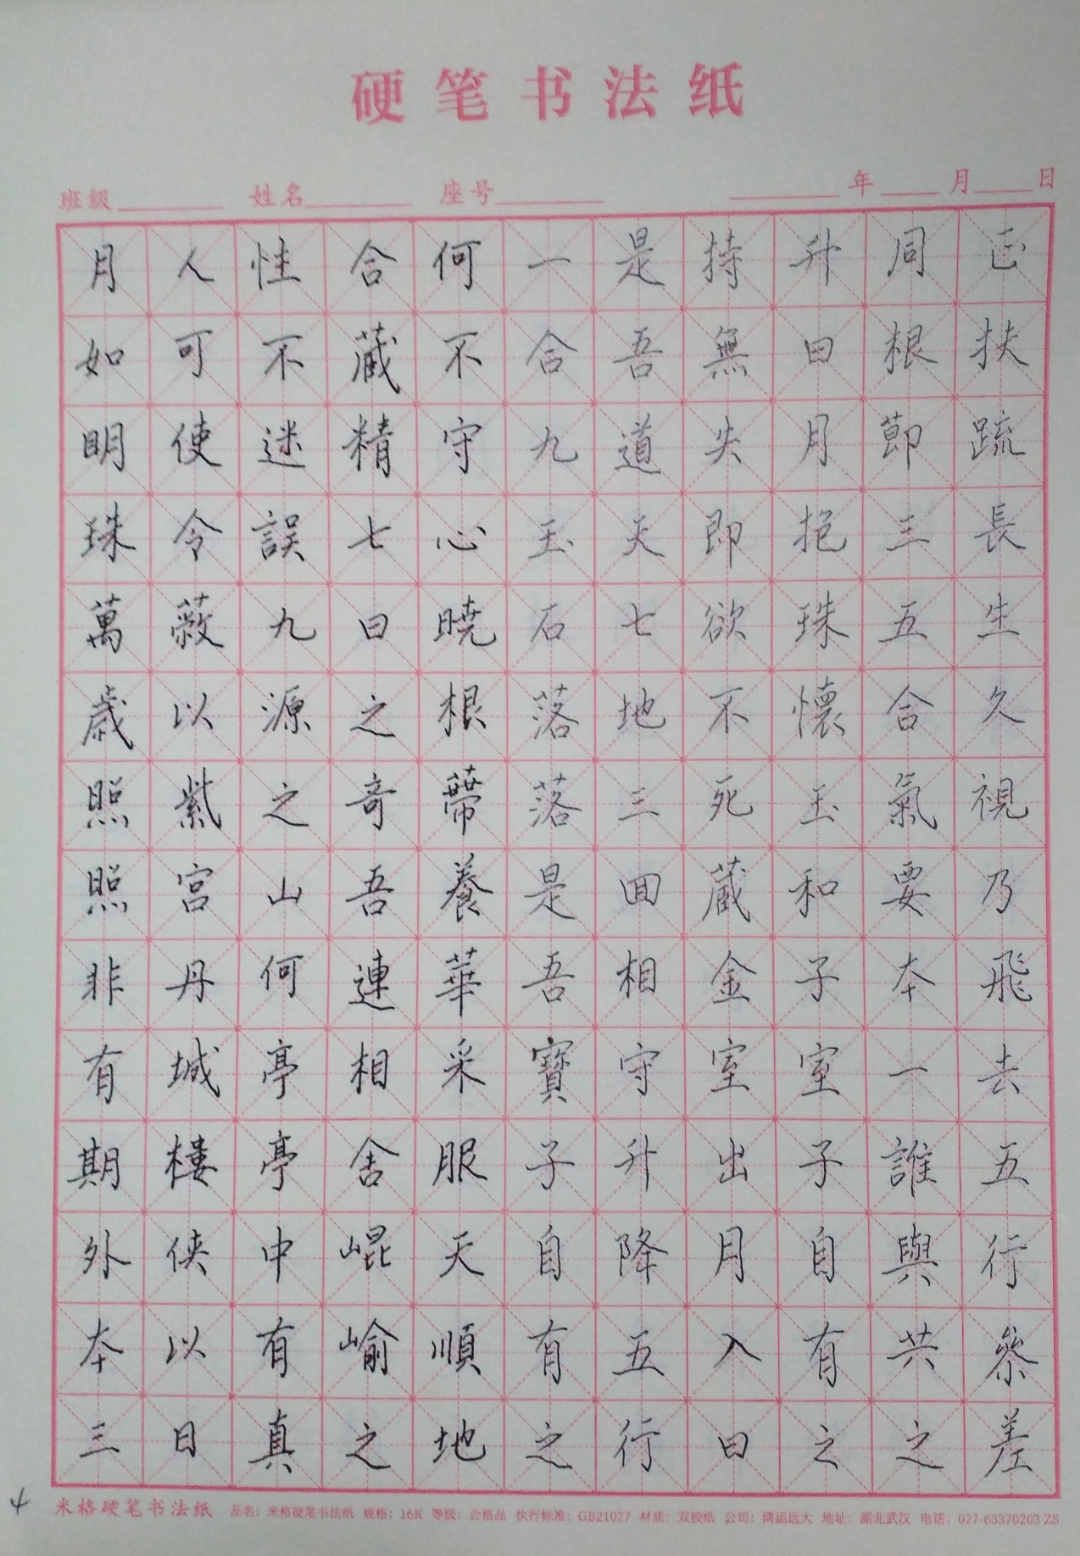 硬笔书法纸
班级 姓名 座号 年 月 日
正扶疏長生久視乃飛去五行參差
同根節三五合氣要本一誰與共之
升日月抱珠懷玉和子室子自有之
持無失即欲不死藏金室出月入日
是吾道天七地三回相守升降五行
一合九玉石落落是吾寶子自有之
何不守心曉根蔕養華采服天順地
合藏精七日之奇吾連相舍崐崳之
性不迷誤九源之山何亭亭中有真
人可使令蔽以紫宮丹城樓俠以日
月如明珠萬歲照照非有期外本三
4
米格硬笔书法纸 品名：米格硬笔书法纸 规格：16K 等级：合格品 执行标准：GB21027 材质：双胶纸 公司：鸿运远大 地址：湖北武汉 电话：027-63370203 ZS